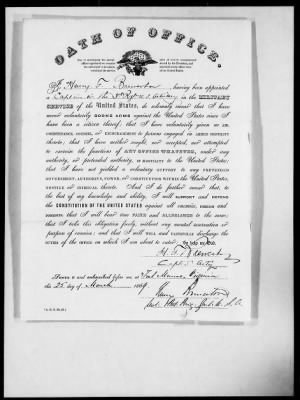 OATH OF OFFICE.
I, Henry F. Brewerton, having been appointed
a Captain in the 5th Regt U.S. Artillery in the MILITARY
SERVICE of the United States, do solemnly swear that I have
never voluntarily BORNE ARMS against the United States since I
have been a citizen thereof; that I have voluntarily given no AID,
COUNTENANCE, COUNSEL, or ENCOURAGEMENT to persons engaged in ARMED HOSTILITY
thereto; that I have neither sought, nor accepted, nor attempted
to exercise the functions of ANY OFFICE WHATEVER, under any
authority, or pretended authority, IN HOSTILITY to the United States;
that I have not yielded a voluntary SUPPORT to any PRETENDED
GOVERNMENT, AUTHORITY, POWER, or CONSTITUTION WITHIN the United States,
HOSTILE or INIMICAL thereto. And I do further swear that, to
the best of my knowledge and ability, I will SUPPORT and DEFEND
the CONSTITUTION OF THE UNITED STATES against all ENEMIES, FOREIGN and
DOMESTIC; that I will bear TRUE FAITH and ALLEGIANCE to the same;
that I take this obligation freely, without any mental reservation or
purpose of evasion; and that I will WELL and FAITHFULLY discharge the
DUTIES OF THE OFFICE on which I am about to enter: So help me God.
H. F. Brewerton
Capt. 5" Arty
Sworn to and subscribed before me, at Fort Monroe Virginia
this 25 day of March 1869.